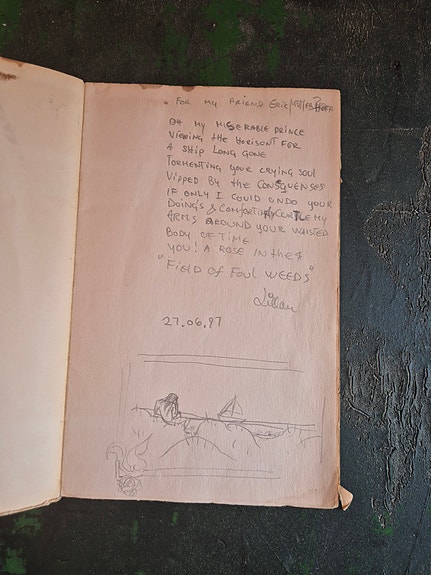 FOR MY FRIEND ERIK
OH MY MISERABLE PRINCE
VIEWING THE HORISONT FOR
A SHIP LONG GONE
TORMENTING YOUR CRYING SOUL
VIPPED BY THE CONSEQUENSES
IF ONLY I COULD UNDO YOUR
DOING'S & COMFORTINGLY MY
ARMS AROUND YOUR WAISTED
BODY OF TIME
YOU! A ROSE IN THE
"FIELD OF FOUL WEEDS"
Lillian
27.06.97